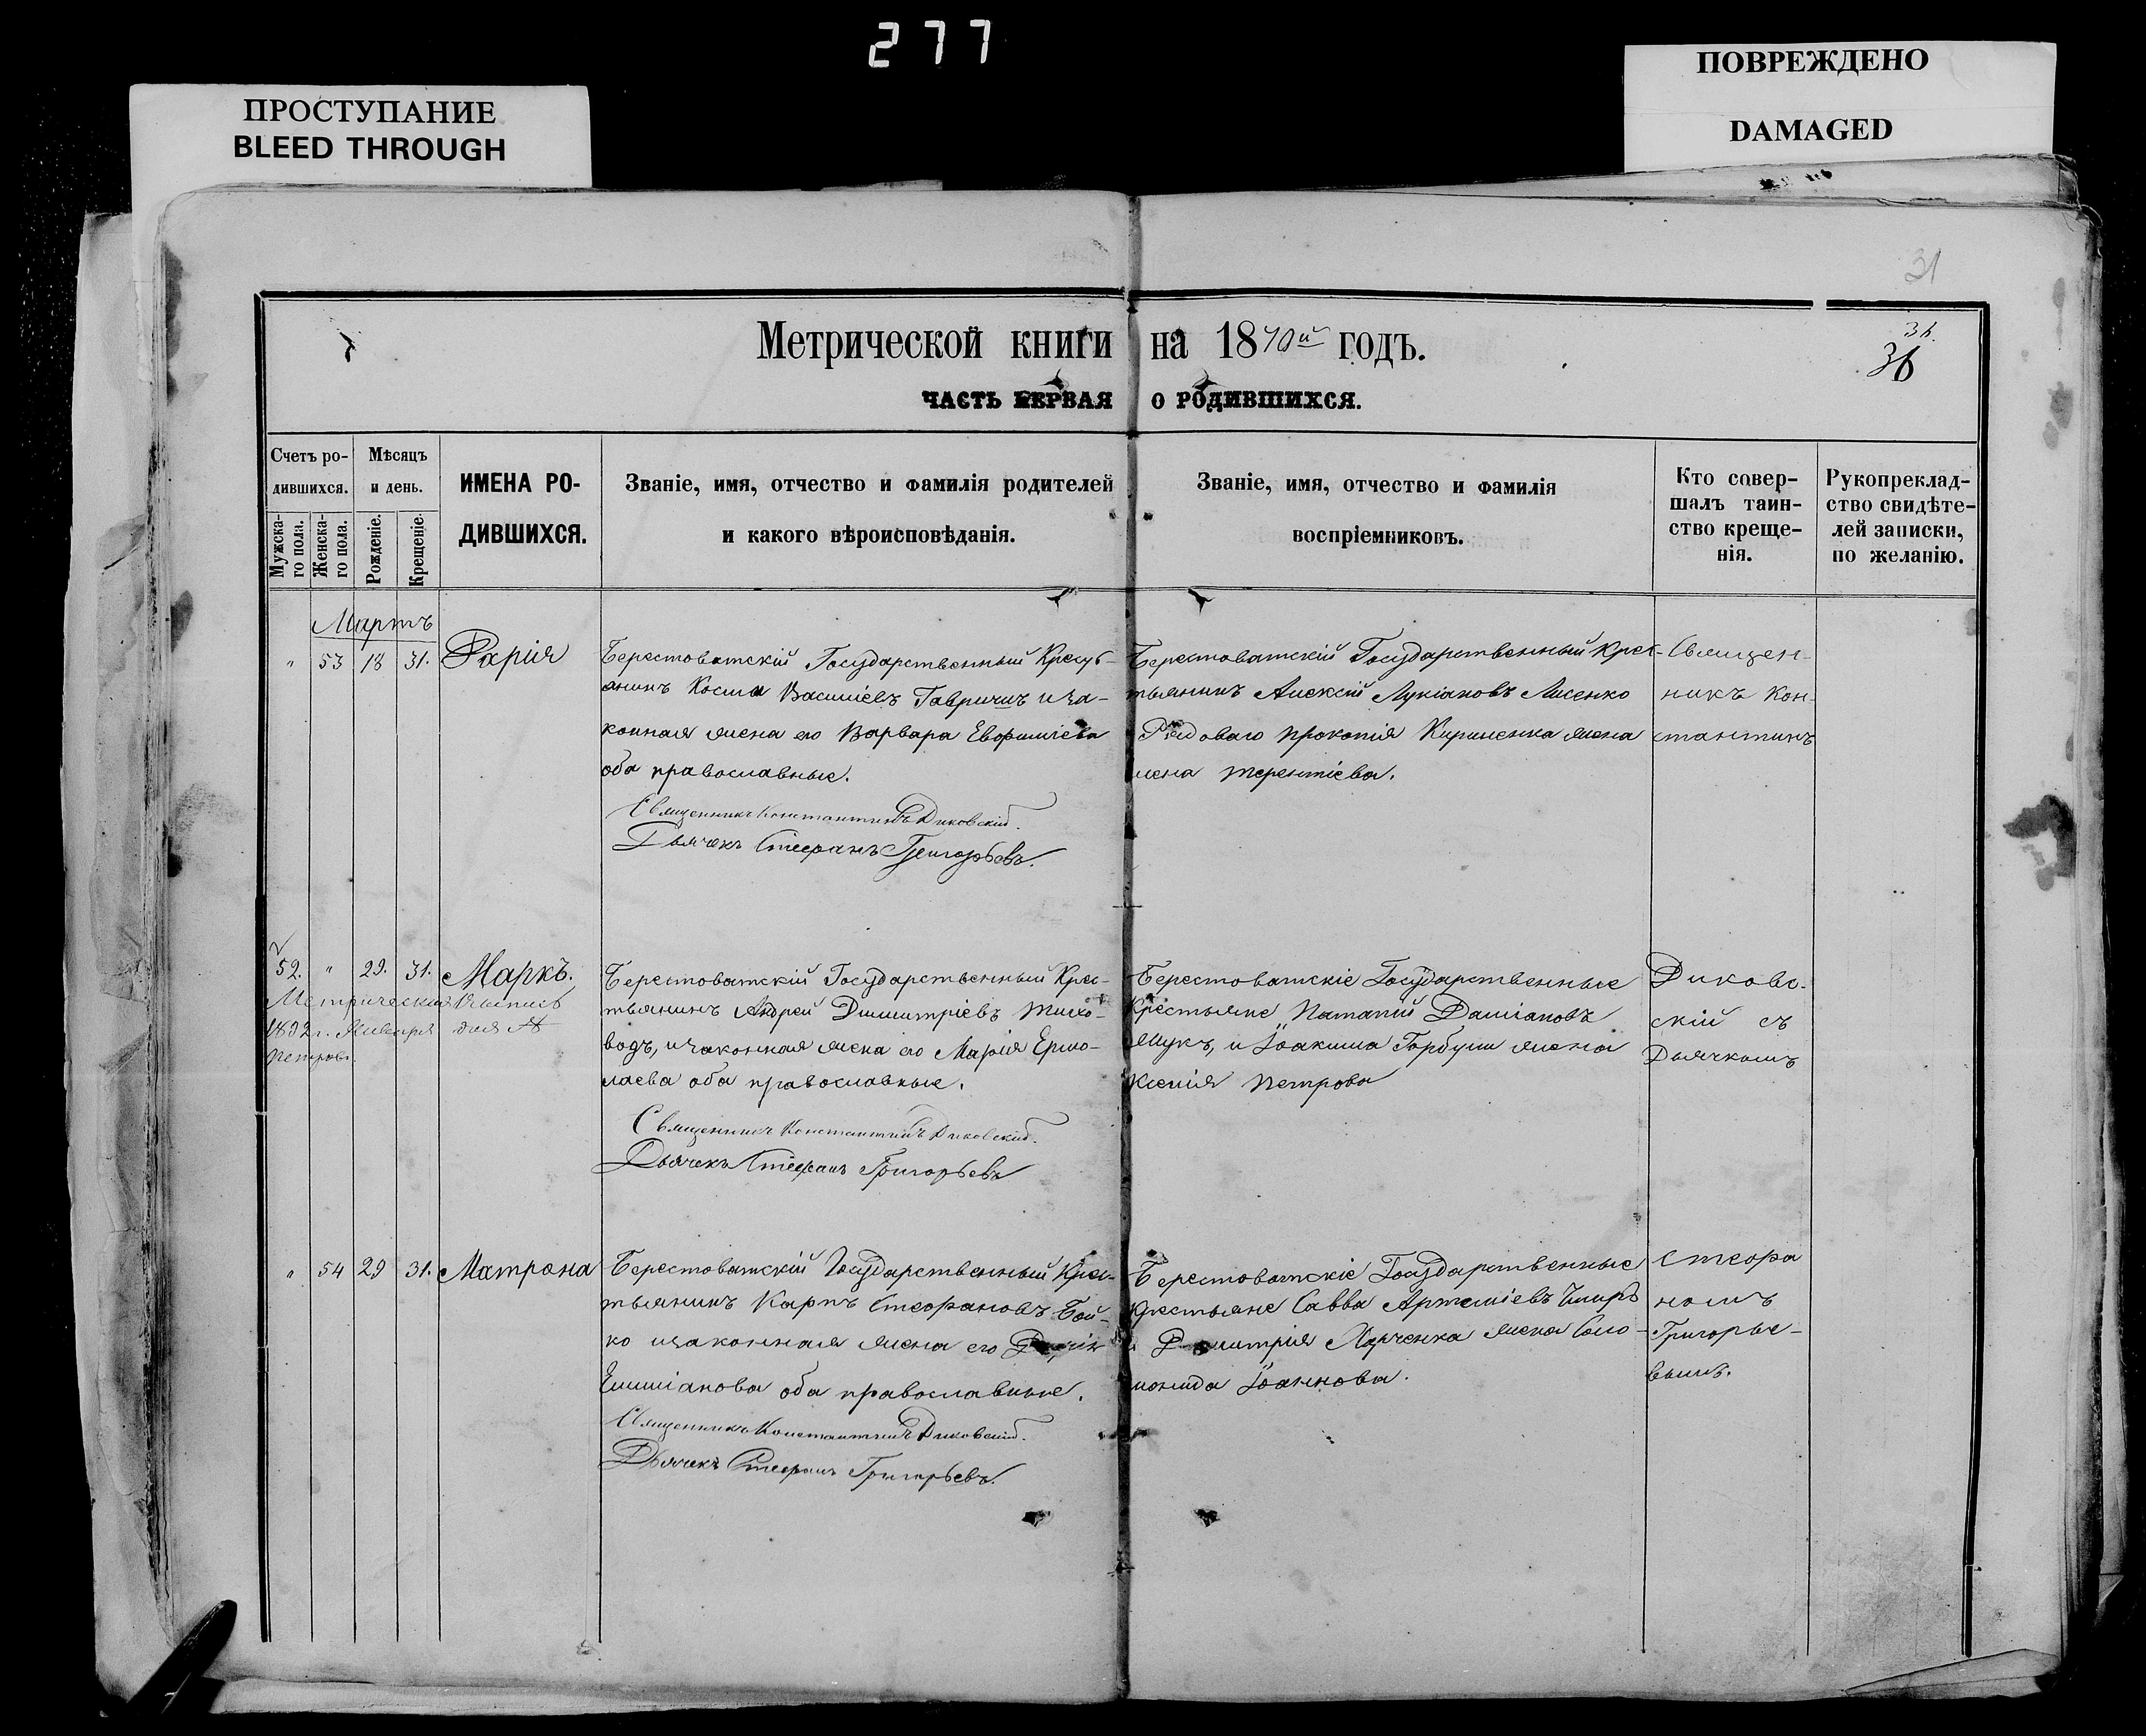 277
ПРОСТУПАНИЕ
BLEED THROUGH
ПОВРЕЖДЕНО
DAMAGED
31
Метрической книги на 1870й годъ.
36
ЧАСТЬ ПЕРВАЯ О РОДИВШИХСЯ.
Счетъ ро-
дившихся.
Мужска-
го пола.
Женска-
го пола.
Мѣсяцъ
и день.
Рожденіе.
Крещеніе.
ИМЕНА РО-
ДИВШИХСЯ.
Званіе, имя, отчество и фамилія родителей
и какого вѣроисповѣданія.
Званіе, имя, отчество и фамилія
воспріемниковъ.
Кто совер-
шалъ таин-
ство креще-
нія.
Рукоприклад-
ство свидѣте-
лей записки,
по желанію.
Мартъ
" 53 18 31. Дарія
Берестоватскій Государственный Кресть-
янинъ Косма Василіевъ Гавришъ и за-
конная жена его Варвара Евфиміева
оба православные.
Священникъ Константинъ Диковскій.
Дьячекъ Стефанъ Григорьевъ.
Берестоватскій Государственный Крес-
тьянинъ Алексій Лукіановъ Лисенко
Рядоваго Прокопія жена
Терентіева.
52. " 29. 31. Маркъ.
Метрическая выпись
1892 г. Января дня №
Берестоватскій Государственный Крес-
тьянинъ Андрей Димитріевъ
водъ, и законная жена его Марія Ермо-
лаева оба православные.
Священникъ Константинъ Диковскій.
Дьячекъ Стефанъ Григорьевъ
Берестоватскіе Государственные
Крестьяне Паталій Даміановъ
Жукъ, и Іоакима жена
Ксенія Петрова
" 54 29 31. Матрона
Берестоватскій Государственный Крес-
тьянинъ Карпъ Стефановъ Бой-
ко и законная жена его
Емиліанова оба православные.
Священникъ Константинъ Диковскій.
Дьячекъ Стефанъ Григорьевъ.
Берестоватскіе Государственные
Крестьяне Савва Артеміевъ
и Димитрія жена Соло-
монида Іоаннова.
Священ-
никъ Кон-
стантинъ
Диковс-
скій съ
Дьячкомъ
Стефа
номъ
Григорье-
вымъ.